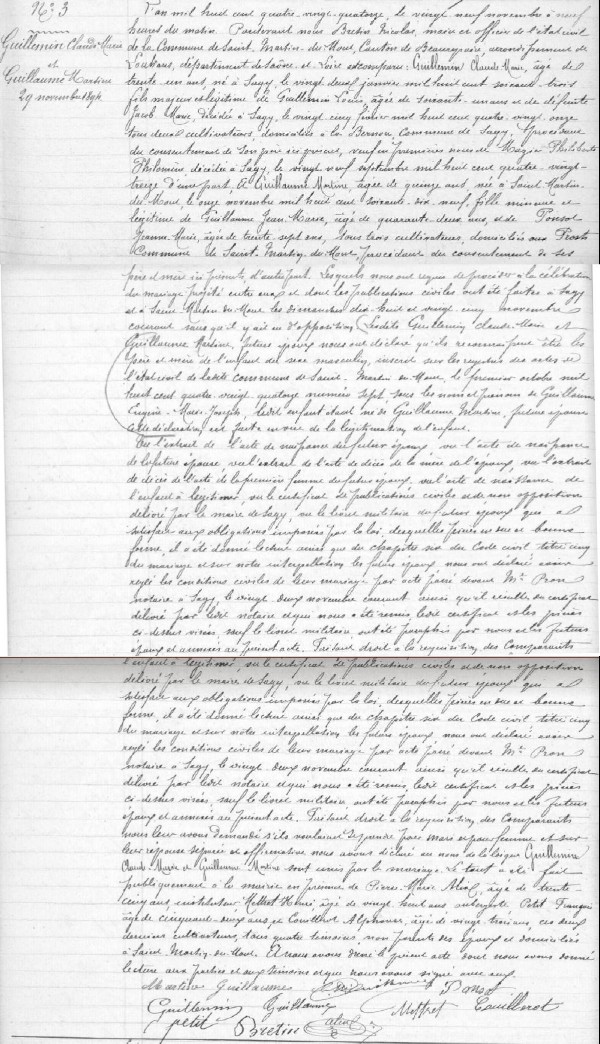 N°: 3
Guillemin Claude-Marie
et
Guillaume Martine
29 novembre 1894
L'an mil huit cent quatre-vingt-quatorze, le vingt neuf novembre à neuf
heures du matin. Pardevant nous Bretin Nicolas, maire et officier de l'état civil
de la Commune de Saint-Martin-du-Mont, Canton de Beaurepaire, arrondissement de
Louhans, département de Saône-et-Loire est comparu: Guillemin Claude-Marie, âgé de
trente un ans, né à Sagy, le vingt deux janvier mil huit cent soixante-trois
fils majeur et légitime de Guillemin Louis, âgé de soixante-un ans et de défunte
Jacob Marie, décédée à Sagy, le vingt cinq mil huit cent quatre-vingt-onze
tous deux cultivateurs, domiciliés à la Commune de Sagy, procédant
du consentement de son père ici présent, veuf en premières noces de Philiberte
Philomène décédée à Sagy, le vingt neuf septembre mil huit cent quatre-vingt-
treize d'une part, et Guillaume Martine, âgée de quinze ans, née à Saint-Martin-
du-Mont le onze novembre mil huit cent soixante-dix-neuf, fille mineure et
légitime de Guillaume Jean-Marie, âgé de quarante-deux ans, et de Ponsot
Jeanne-Marie, âgée de trente sept ans, tous trois cultivateurs, domiciliés aux
Commune de Saint-Martin-du-Mont, procédant du consentement de ses
père et mère ici présents, d'autre part. Lesquels nous ont requis de procéder à la célébration
du mariage projeté entre eux et dont les publications civiles ont été faites à Sagy
et à Saint-Martin-du-Mont les dimanches dix-huit et vingt-cinq novembre
courant sans qu'il y ait eu d'opposition. Lesdits Guillemin Claude-Marie et
Guillaume Martine, futurs époux nous ont déclaré qu'ils reconnaissent être les
père et mère de l'enfant du sexe masculin, inscrit sur les registres des actes de
l'état civil de ladite commune de Saint-Martin-du-Mont, le premier octobre mil
huit cent quatre-vingt-quatorze numéro sept, sous les nom et prénoms de Guillaume
Marie-Joseph, ledit enfant étant né de Guillaume Martine, future épouse
cette déclaration est faite en vue de la légitimation de l'enfant.
Vu l'extrait de l'acte de naissance du futur époux, vu l'acte de naissance
de la future épouse, vu l'extrait de l'acte de décès de la mère de l'époux, vu l'extrait
de décès de l'acte de la première femme du futur époux, vu l'acte de naissance de
l'enfant à légitimer, vu le certificat de publications civiles et de non opposition
délivré par le maire de Sagy, vu le livret militaire du futur époux qui a
satisfait aux obligations imposées par la loi, desquelles pièces en due et bonne
forme, il a été donné lecture ainsi que du chapitre six du Code civil titre cinq
du mariage et sur notre interpellation les futurs époux nous ont déclaré avoir
réglé les conditions civiles de leur mariage par acte passé devant Me Pron
notaire à Sagy, le vingt deux novembre courant ainsi qu'il résulte du certificat
délivré par ledit notaire et qui nous a été remis, ledit certificat et les pièces
ci-dessus visées, sauf le livret militaire, ont été paraphés par nous et les futurs
époux et annexés au présent acte. Faisant droit à la réquisition, des Comparants
l'enfant à légitimer, vu le certificat de publications civiles et de non opposition
délivré par le maire de Sagy, vu le livret militaire du futur époux qui a
satisfait aux obligations imposées par la loi, desquelles pièces en due et bonne
forme, il a été donné lecture ainsi que du chapitre six du Code civil titre cinq
du mariage et sur notre interpellation les futurs époux nous ont déclaré avoir
réglé les conditions civiles de leur mariage par acte passé devant Me Pron
notaire à Sagy, le vingt deux novembre courant ainsi qu'il résulte du certificat
délivré par ledit notaire et qui nous a été remis, ledit certificat et les pièces
ci-dessus visées, sauf le livret militaire, ont été paraphés par nous et les futurs
époux et annexés au présent acte. Faisant droit à la réquisition, des Comparants
nous leur avons demandé s'ils voulaient se prendre pour mari et pour femme et sur
leur réponse séparée et affirmative nous avons déclaré au nom de la loi que Guillemin
Claude-Marie et Guillaume Martine sont unis par le mariage. Le tout a été fait
publiquement à la mairie en présence de Pierre-Marie, âgé de trente-
cinq ans, instituteur, Meffret Henri, âgé de vingt huit ans aubergiste, Petit François
âgé de cinquante-cinq ans et Alphonse, âgé de vingt trois ans, ces deux
derniers cultivateurs, tous quatre témoins non parents des époux et domiciliés
à Saint-Martin-du-Mont. Et nous avons dressé le présent acte dont nous avons donné
lecture aux parties et aux témoins et que nous avons signé avec eux.
Martine Guillaume Ponsot
Guillemin Guillaume Meffret
Petit Bretin